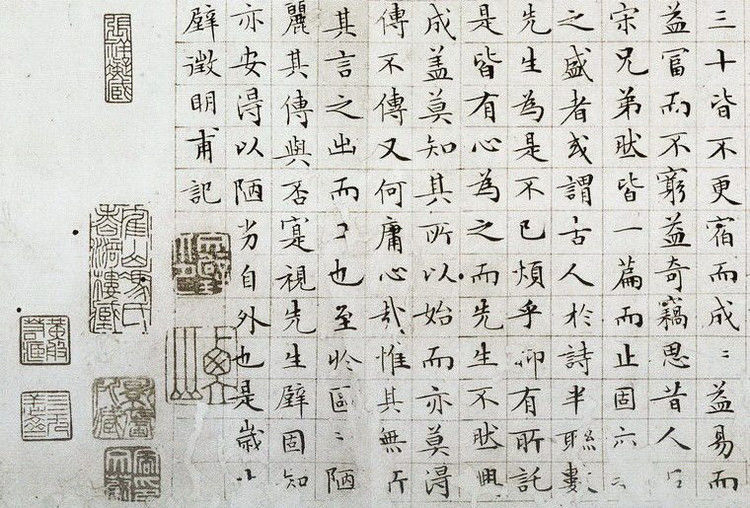 三十皆不更宿而成〻益易而
益富而不窮益奇竊思昔人
宋兄弟然皆一篇而止固六
之盛者或謂古人於詩半聯數
先生為是不已煩乎抑有所託
是皆有心為之而先生不然興
成盖莫知其所以始而亦莫得
傳不傳又何庸心哉惟其無所
其言之出而〻也至於區〻陋
麗其傳與否寔視先生璧固知
亦安得以陋劣自外也是歲
璧徵明甫記